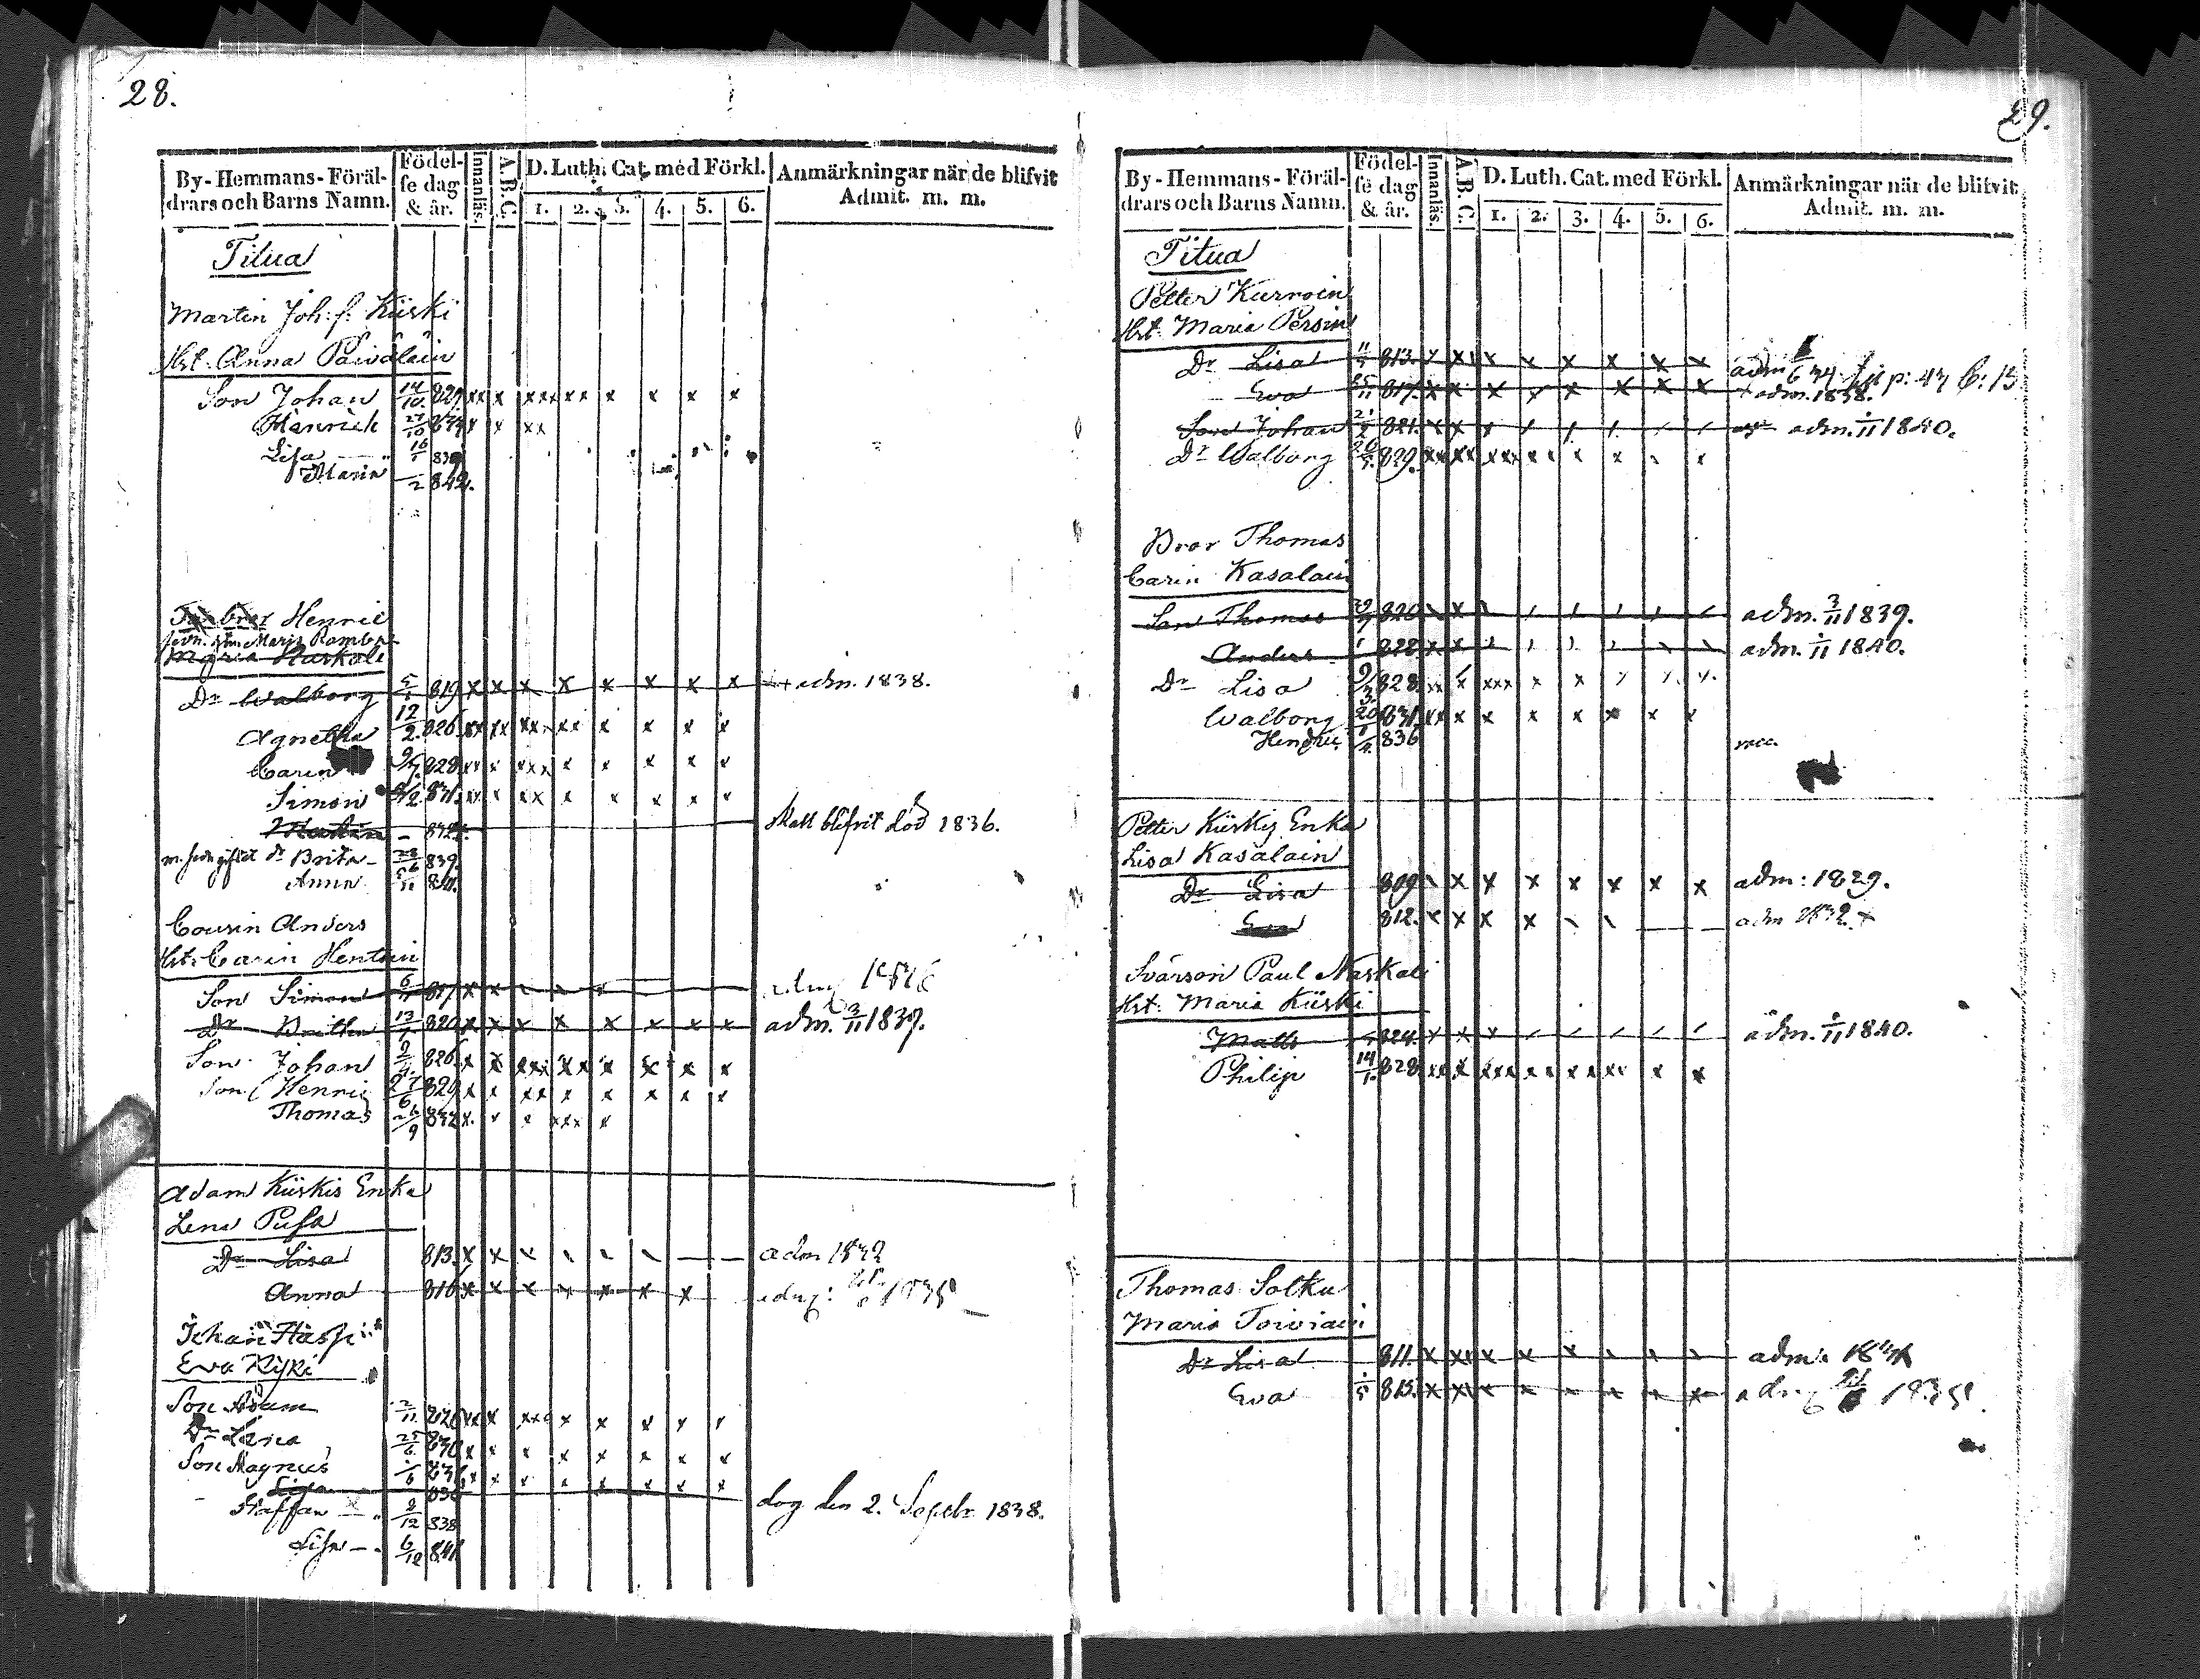 28.
By-Hemmans-Föräl-
drars och Barns Namn.
Födel-
se dag
& år.
Innanläs.
A.B.C.
D. Luth. Cat. med Förkl.
1. 2. 3. 4. 5. 6.
Anmärkningar när de blifvit
Admit. m. m.
Titua
Martin Joh. s. Kiiski
Hst. Anna Päiväläin
Son Johan 14/10 829 xx x xxx xx x x x x
Hinrich 27/10 x x xx
Lisa 16
Maria /2 842.
bror Henric
Maria
D:r Walborg 819 x x x x x x x x + adm. 1838.
Agnetha 12/2 826. xx xx xx xx x x x x
Carin 9/ 828 xx x xxx x x x x x
Simon 831. xx x xx x x x x x
Martin - skall blifvit död 1836.
d:r Brita 839.
Anna 841.
Cousin Anders
Hst. Carin Hentuin
Son Simon 6/ 817 x x
D:r Britha 13/ 820 x x x x x x x x adm. 3/11 1839.
Son Johan 9/4 826. x x xxx xx x x x x
Son Henric 27/6 829 x x xx x x x x x
Thomas 26/9 832 x x x xxx x
Adam Kiiskis Enka
Lena Pusa
D:r Lisa 813. x x x adm 1832
Anna 816 x x x x x x x
Johan Hässi
Eva Kiiski
Son Adam 2/11 826 xx x xxx x x x x x
D:r Lena 25/6 830 x x x x x x x x
Son Magnus /6 x x x x x x x x
Lisa 836 dog den 2. Septbr 1838.
Staffan 9/12 838
Lisa - 6/12 841
29.
By-Hemmans-Föräl-
drars och Barns Namn.
Födel-
se dag
& år.
Innanläs.
A.B.C.
D. Luth. Cat. med Förkl.
1. 2. 3. 4. 5. 6.
Anmärkningar när de blifvit
Admit. m. m.
Titua
Petter Kurvoin
Hst. Maria Persin
D:r Lisa 813. x xx x x x x x x adm p: 47
Eva 817. x x x x x x x x + adm. 1838.
Son Johan 821. x x x adm. 1/11 1840.
D:r Walborg 829. xx xx xxx xx x x x x
Bror Thomas
Carin Kasalain
Son Thomas 29/ 820 adm. 3/11 1839.
Anders adm. 1/11 1840.
D:r Lisa 9/3 828. xx x xxx x x x x x
Walborg 20/ 831. xx x x x x x x x
Hendric 1/4 836
Petter Kiiskis Enka
Lisa Kasalain
D:r Lisa 809 x x x x x x x adm: 1829.
Eva 812. x x x x adm 1832. +
Svärson Paul Naskali
Hst. Maria Kiiski
Matts 824. x x x adm. 1/11 1840.
Philip 14/1 828 xx x xxx xx xx xx x x
Thomas Solku
Maria Toiviain
D:r Lisa 811. x xx x x x adm.
Eva 1/5 815. x xx x x x x x x